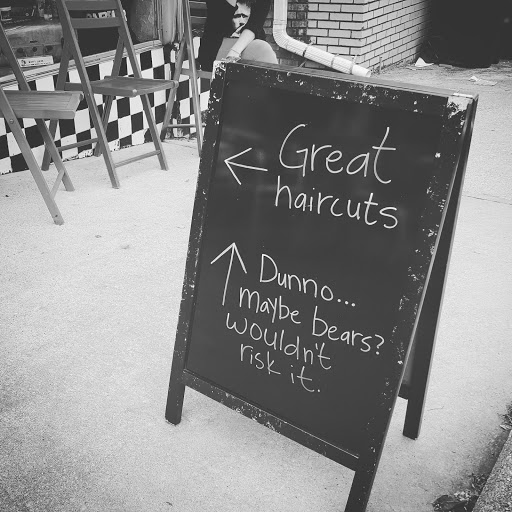 ← Great
haircuts
↑ Dunno...
maybe bears?
wouldn't
risk it.